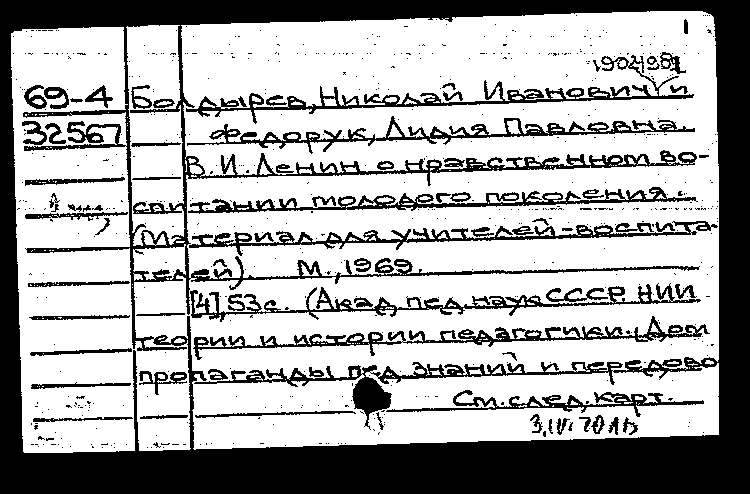 1
1904981
69-4 Болдырев, Николай Иванович и
32567 Федорук, Лидия Павловна.
В. И. Ленин о нравственном во-
спитании молодого поколения.
(Материал для учителей-воспита-
телей). М., 1969.
[4], 53 с. (Акад. пед. наук СССР. НИИ
теории и истории педагогики. Дом
пропаганды пед. знаний и передово
См. след. карт.